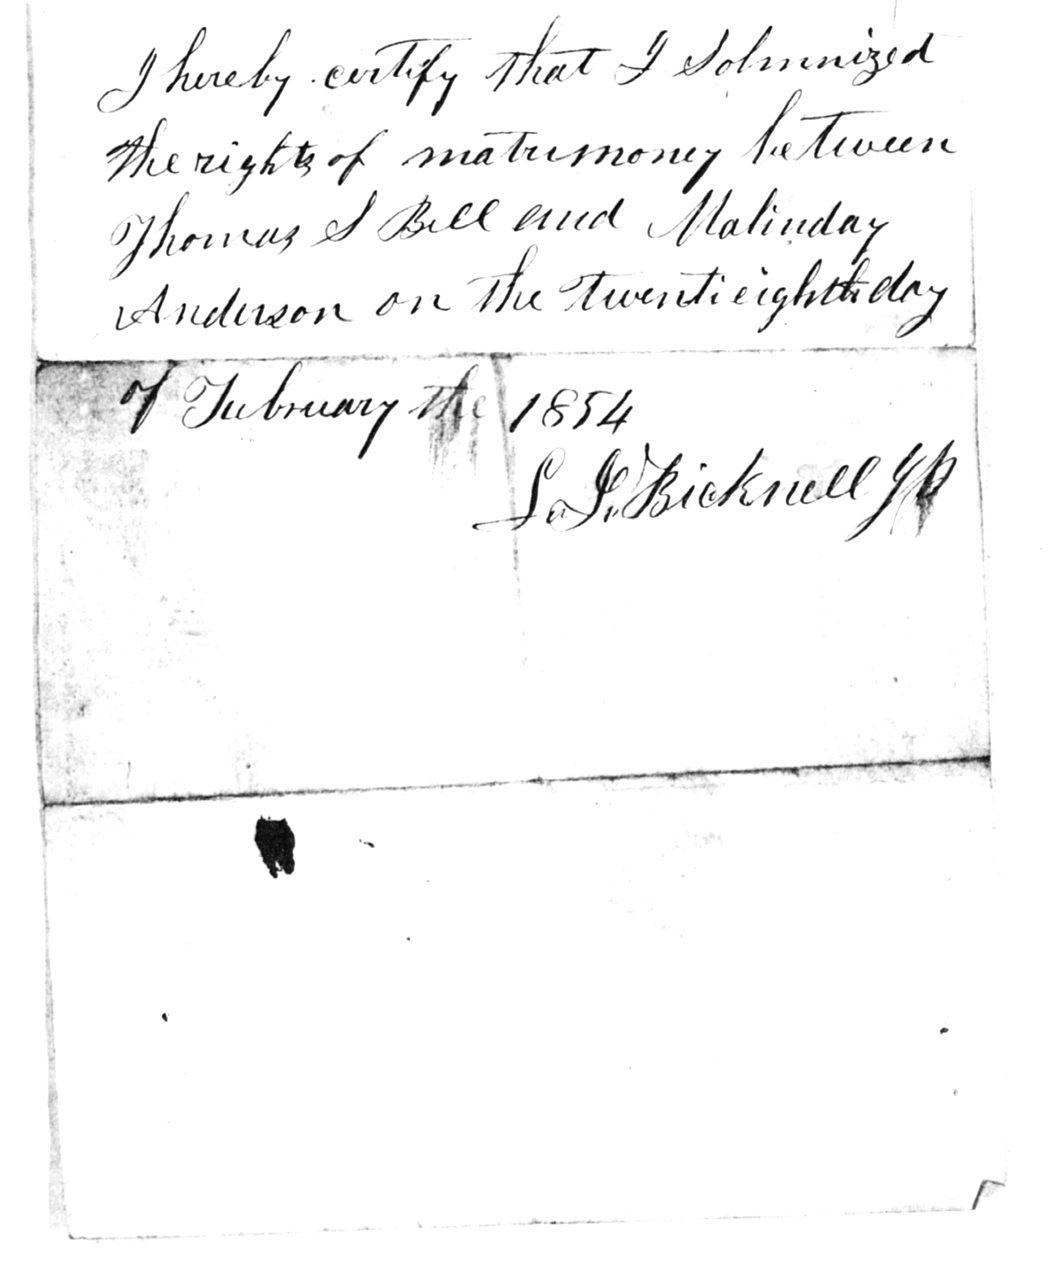 I hereby certify that I Solmnized
the rights of matrimoney between
Thomas S Bell and Malinday
Anderson on the twentieighth day
of Februrary the 1854
L. J. Bicknell JP